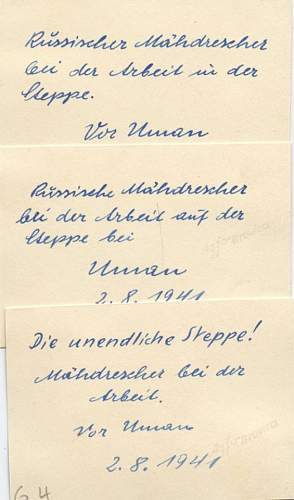 Russischer Mähdrescher
bei der Arbeit in der
Steppe.
Vor Uman
Russische Mähdrescher
bei der Arbeit auf der
Steppe bei
Uman
2. 8. 1941
Die unendliche Steppe!
Mähdrescher bei der
Arbeit.
Vor Uman
2. 8. 1941
G 4